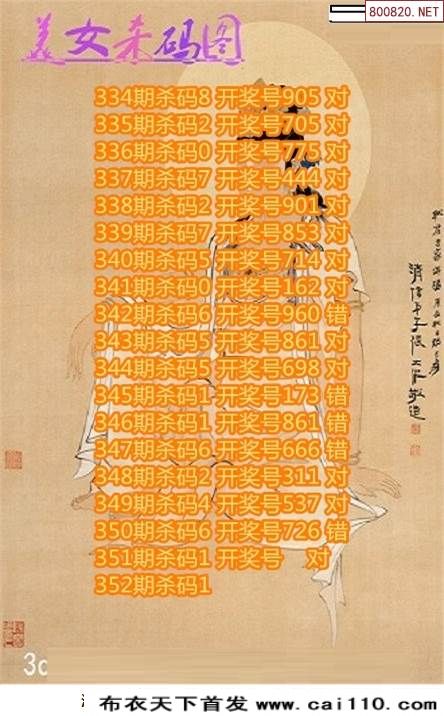 800820.NET
美女杀码图
334期杀码8 开奖号905 对
335期杀码2 开奖号705 对
336期杀码0 开奖号775 对
337期杀码7 开奖号444 对
338期杀码2 开奖号901 对
339期杀码7 开奖号853 对
340期杀码5 开奖号714 对
341期杀码0 开奖号162 对
342期杀码6 开奖号960 错
343期杀码5 开奖号861 对
344期杀码5 开奖号698 对
345期杀码1 开奖号173 错
346期杀码1 开奖号861 错
347期杀码6 开奖号666 错
348期杀码2 开奖号311 对
349期杀码4 开奖号537 对
350期杀码6 开奖号726 错
351期杀码1 开奖号 对
352期杀码1
3d
布衣天下首发 www.cai110.com